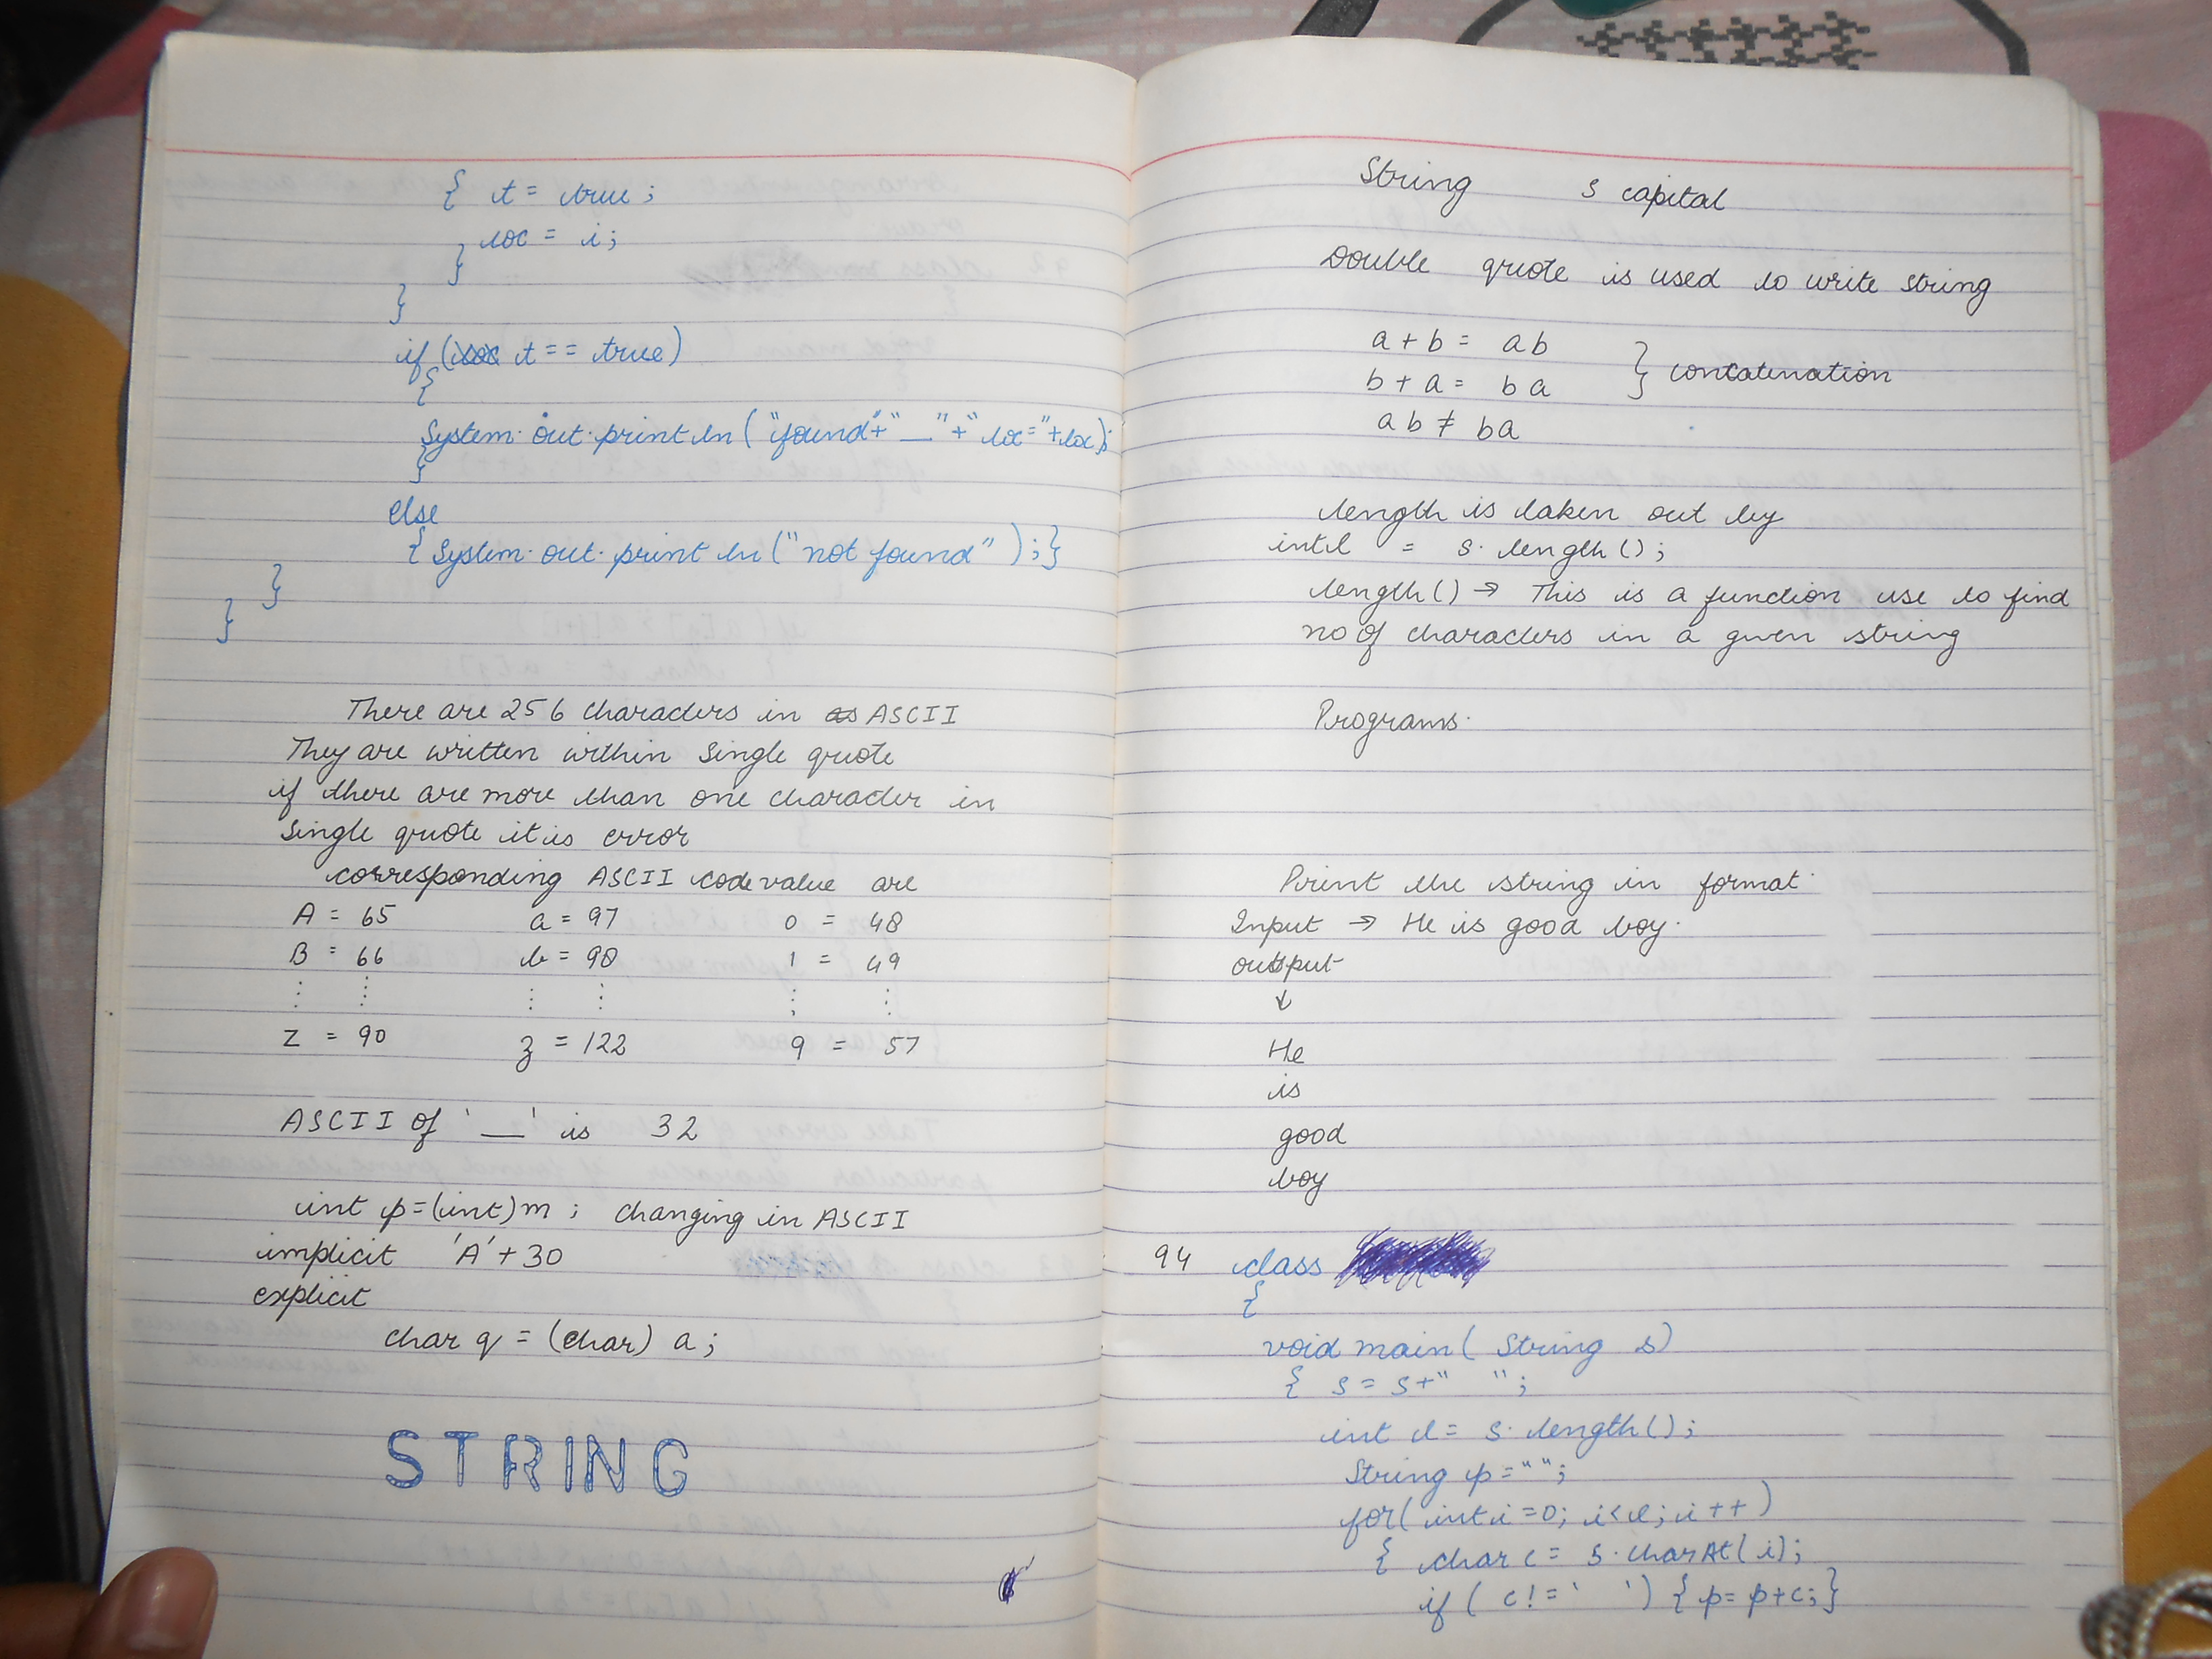 { t = true ;
loc = i ;
}
}
if ( t == true)
{
System.out.println ("found"+"__"+"loc="+loc);
}
else
{ System.out.println ("not found") ; }
}
}
There are 256 characters in ASCII
They are written within single quote
if there are more than one character in
single quote it is error
corresponding ASCII code value are
A = 65 a = 97 0 = 48
B = 66 b = 98 1 = 49
⋮ ⋮ ⋮ ⋮ ⋮ ⋮
Z = 90 z = 122 9 = 57
ASCII of '__' is 32
int p = (int) m ; changing in ASCII
implicit 'A' + 30
explicit
char q = (char) a ;
STRING
String s capital
Double quote is used to write string
a + b = ab
b + a = ba } concatenation
ab ≠ ba
length is taken out by
int l = s. length () ;
length () → This is a function use to find
no of characters in a given string
Programs.
Print the string in format.
Input → He is good boy.
output
↓
He
is
good
boy
94 class
{
void main ( String s)
{ s = s + " " ;
int l = s. length () ;
String p = "" ;
for ( int i = 0 ; i < l ; i ++ )
{ char c = s. charAt ( i ) ;
if ( c != ' ' ) { p = p + c ; }